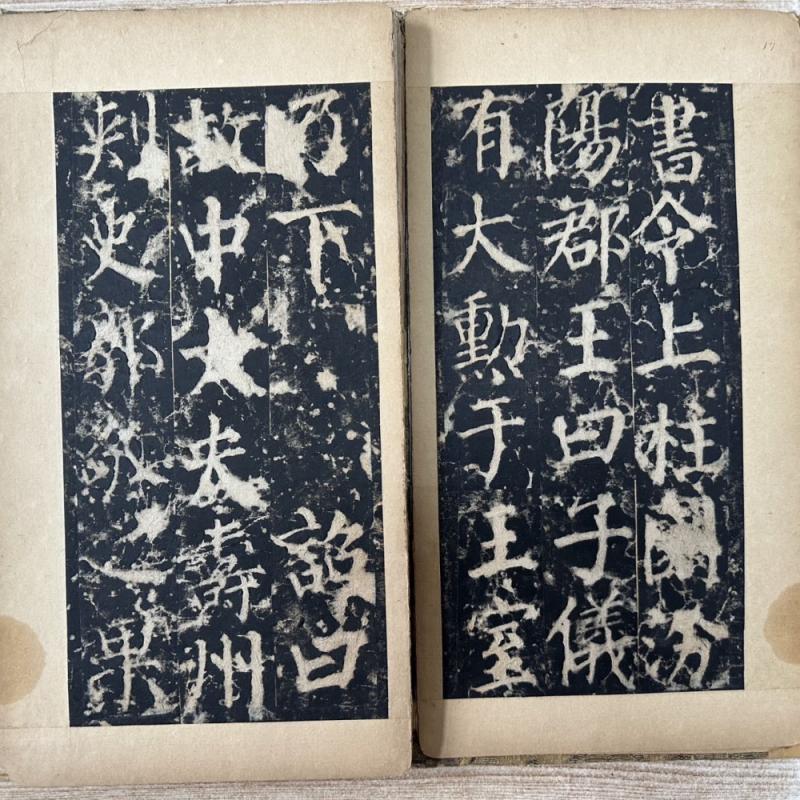 書令上柱國汾
陽郡王曰子儀
有大勳于王室
乃下　詔曰
故中大夫壽州
刺史郭敬之果
17